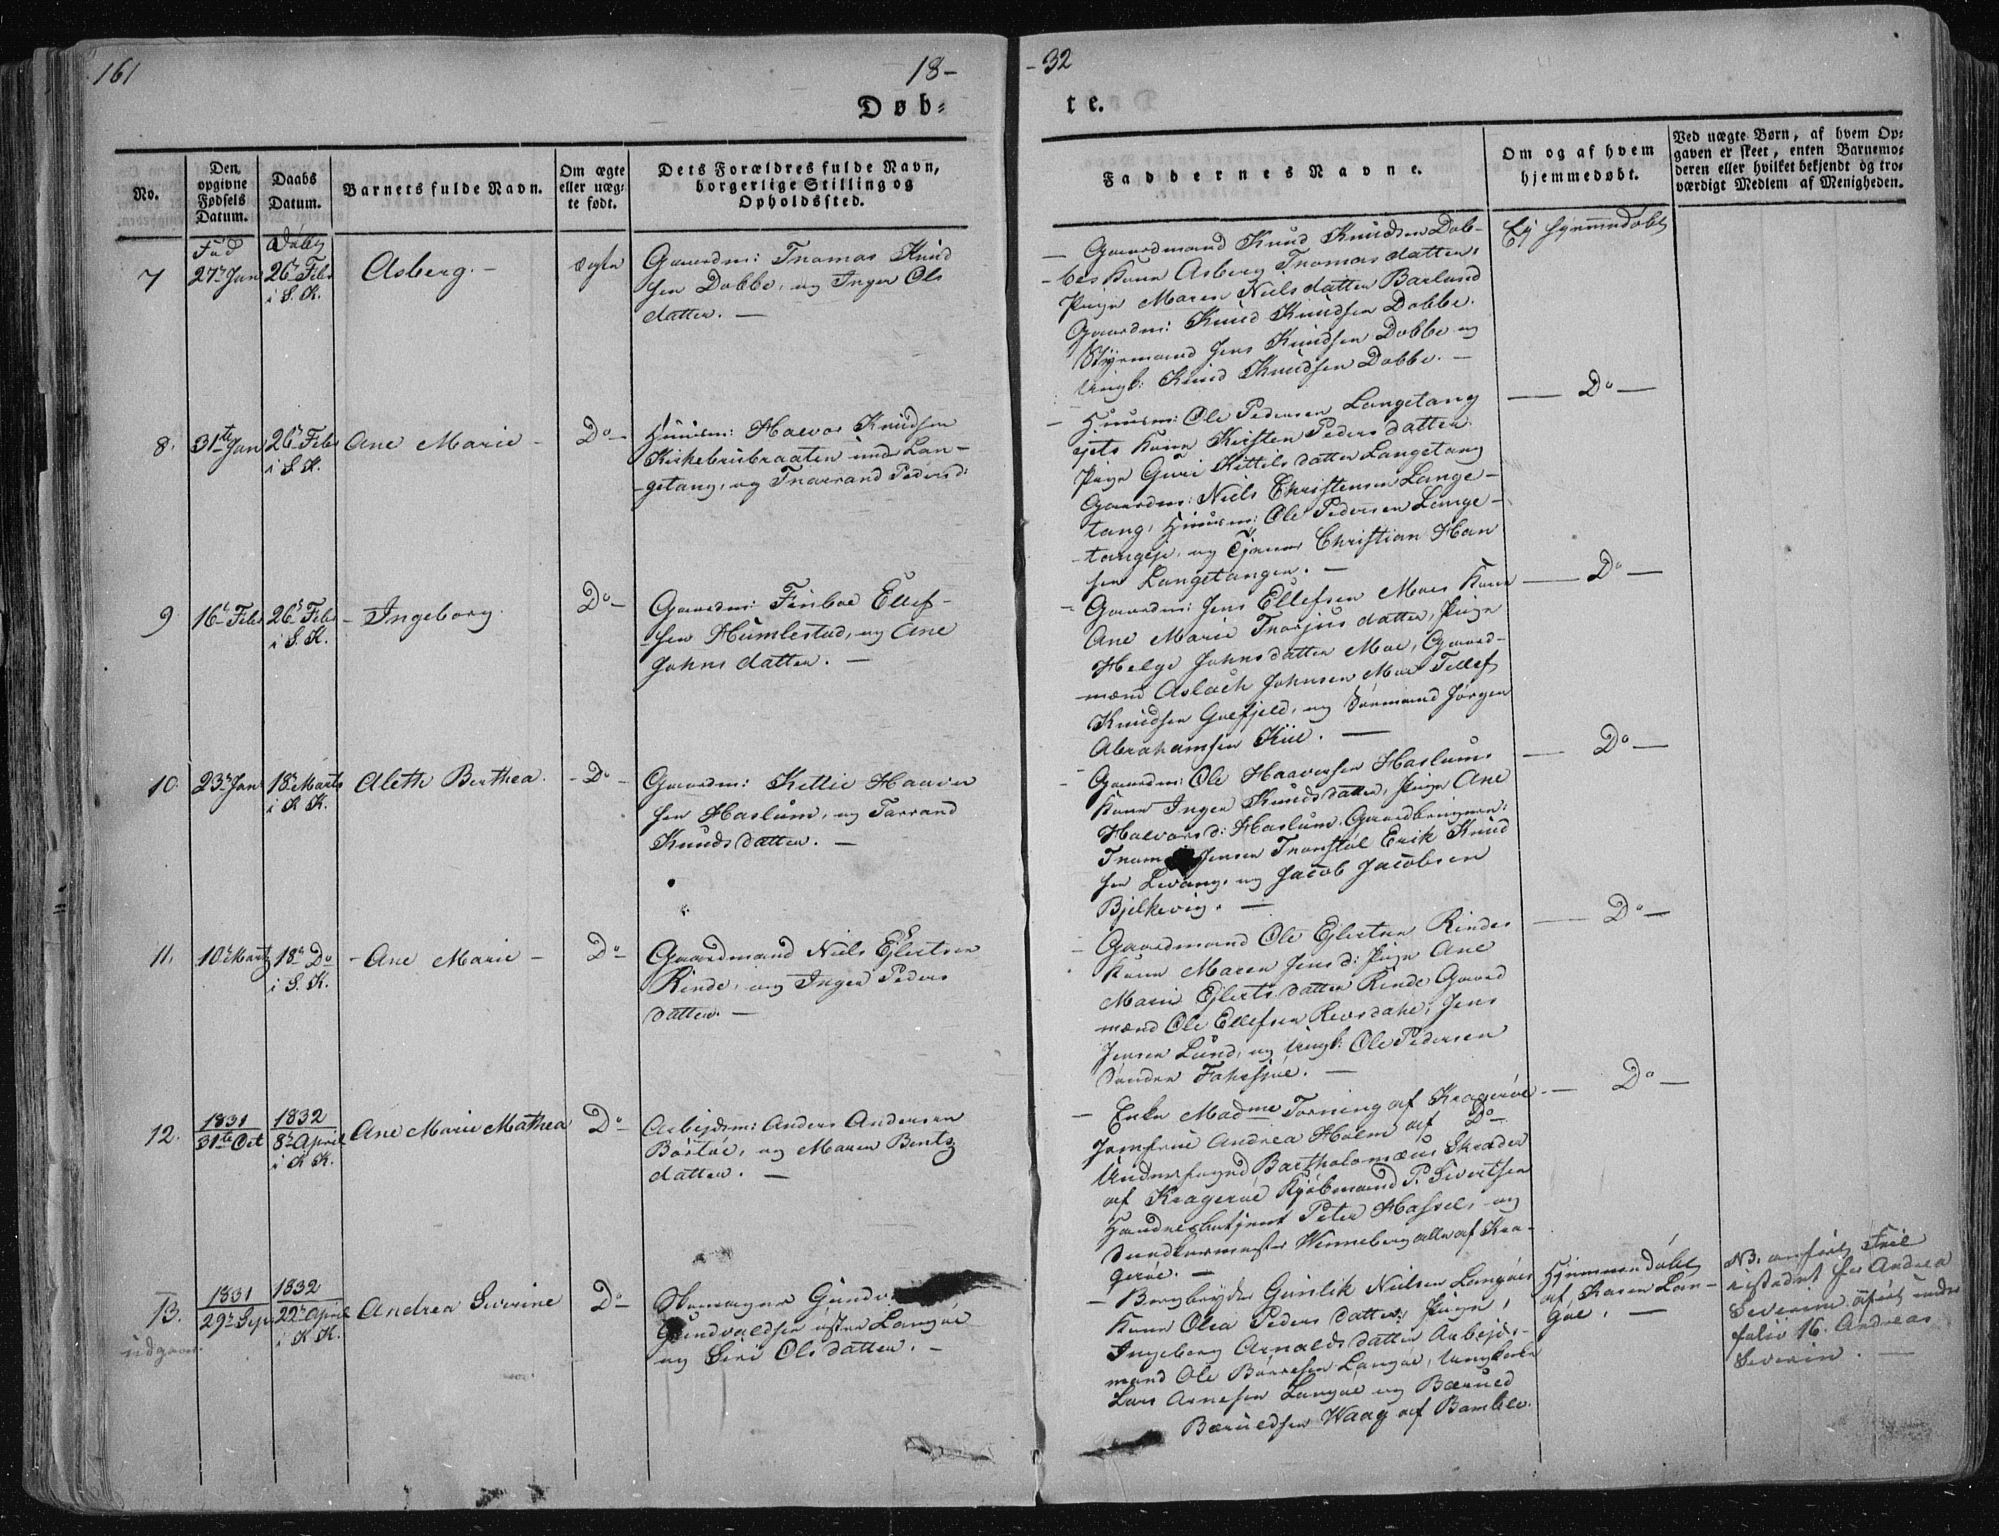 161
18-
-32
Døb-
te.
No.
Den opgivne Fødsels Datum.
Daabs Datum.
Barnets fulde Navn.
Om ægte eller uægte født.
Dets Forældres fulde Navn, borgerlige Stilling og Opholdssted.
Faddernes Navne.
Om og af hvem hjemmedøbt.
Ved uægte Børn, af hvem Opgaven er skeet, enten Barnemoderen eller hvilket bekjendt og troværdigt Medlem af Menigheden.
Fød
Døbt
7
27r Jan
26r Febr
i S. K.
Asberg. -
ægte
Gaardm: Thomas Knud
sen Dobbe, og Inger Ols
datter. -
- Gaardmand Knud Knudsen Dob-
bes Kone Asberg Thomasdatter,
Pige Maren Nielsdatter Barland
Gaardm: Knud Knudsen Dobbe.
Styrmand Jens Knudsen Dobbe og
Ungk: Knud Knudsen Dobbe. -
Ej hjemmedøbt
8.
31te Jan
26r Febr
i S. K.
Ane Marie -
Do -
Huusm: Halvor Knudsen
Kirkebrisbraaten under Lan-
getang, og Thorrand Pedersd:
- Huusm: Ole Pedersen Langetang
ejets Kone Kirsten Pedersdatter
Pige Guri Kittilsdatter Langetang
Gaardm: Niels Christensen Lange-
tang, Huusm: Ole Pedersen Lange-
tangeje, og Tjener Christian Han
sen Langetangen. -
Do -
9
16r Febr
26r Febr
i S. K.
- Ingeborg.
Do -
Gaardm: Finboe Ellef-
sen Humlestad, og Ane
Johnsdatter. -
- Gaardm: Jens Ellefsen Moes Kone
Ane Marie Thorjusdatter, Pige
Helge Johnsdatter Moe, Gaard-
mænd Aslach Johnsen Moe Tellef
Knudsen Grefjeld, og Sømand Jørgen
Abrahamsen Kiil. -
Do -
10
23r Jan
18r Marts
i K K.
Aleth Berthea.
- Do -
Gaardm: Kittil Haavor
sen Haslum, og Tarrand
Knudsdatter. -
- Gaardm: Ole Haavorsen Haslums
Kone Inger Knudsdatter, Pige Ane
Halvorsd: Haslum, Gaardbrugerne:
Jensen Thorstøl Erik Knud
sen Levang, og Jacob Jacobsen
Bjelkevig. -
Do -
11.
10r Marts
18r Do
i S. K.
- Ane Marie -
Do -
Gaardmand Niels Ejlertsen
Rinde, og Inger Peders
datter. -
- Gaardmand Ole Ejlertsen Rindes
Kone Maren Jensd: Pige Ane
Marie Ejlertsdatter Rinde Gaard
mænd Ole Ellefsen Revsdale, Jens
Jensen Lund, og Ungk: Ole Pedersen
Sønder Farsjøe. -
Do -
12.
1831
31te Oct
1832
8r April
i K K.
Ane Marie Mathea
Do -
Arbejdsm: Anders Andersen
Bøstøe, og Maren Bentz
datter. -
- Enke Madme Torning af Kragerøe
Jomfrue Andrea Holm af Do
Underfoged Bartholomæus Skrøder
af Kragerøe Kjøbmand P. Sivertsen
Handelsbetjent Peter Hassel, og
Bundtormester Wenneberg alle af Kra-
gerøe. -
Do -
13.
udgaaer
1831
29r Sep
1832
22r April
i K K.
Andrea Severine
Do -
Gundvaldsen østre Langøe
og Siri Olsdatter. -
- Bergbryder Gunlik Nielsen Langøes
Kone Olea Pedersdatter, Pige,
Ingeborg Arnaldsdatter Arbejds-
mand Ole Børresen Langøe, Ungkarle
Lars Arnesen Langøe og Bærued
Bæruldsen Waag af Bamble.
Hjemmedøbt
af, Karen Lan-
gøe. -
NB. anført Feil
istedet for Andrea
Severine. Anført under
folio 16. Andreas
Severin. -